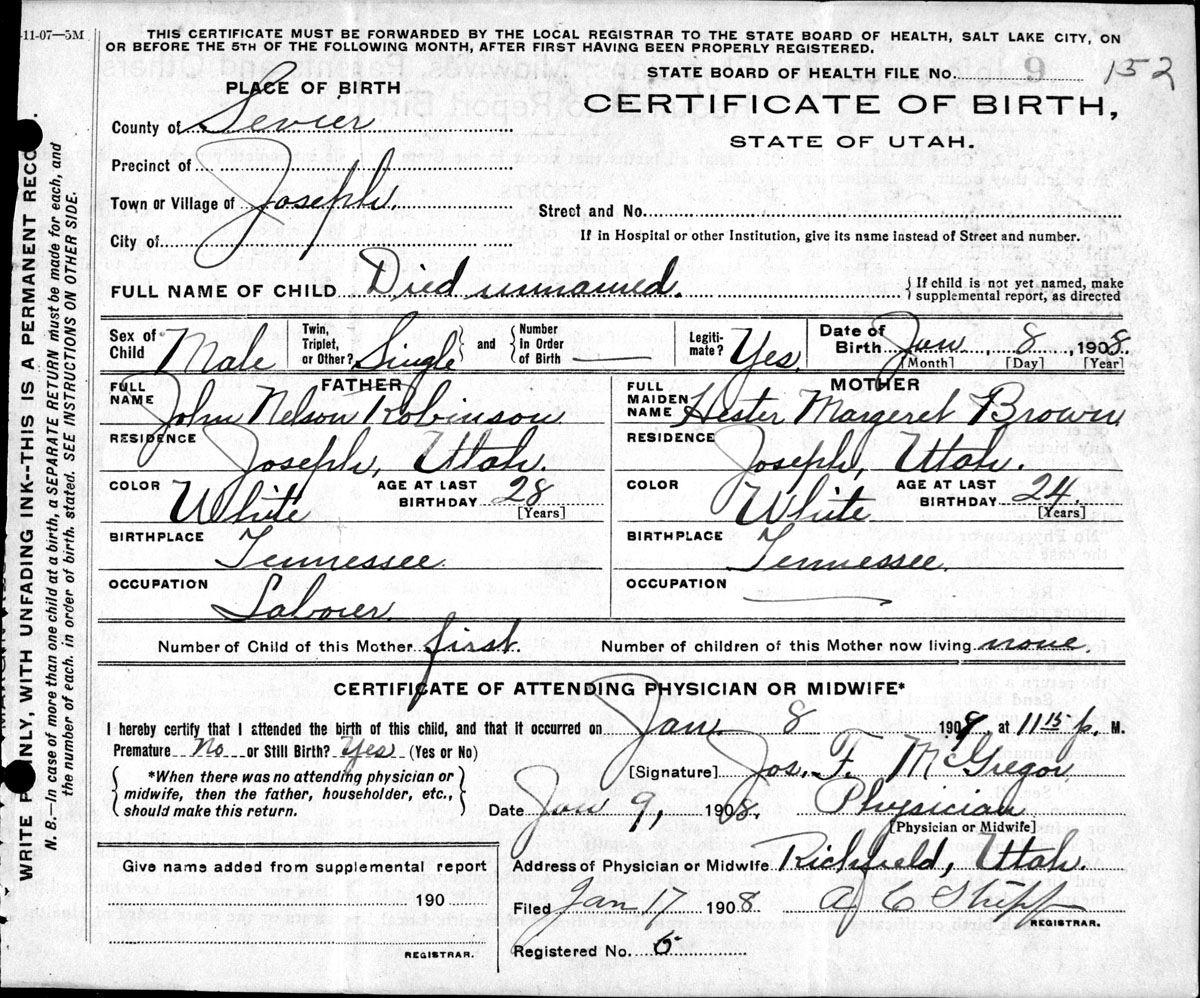 -11-07—5M
THIS CERTIFICATE MUST BE FORWARDED BY THE LOCAL REGISTRAR TO THE STATE BOARD OF HEALTH, SALT LAKE CITY, ON
OR BEFORE THE 5TH OF THE FOLLOWING MONTH, AFTER FIRST HAVING BEEN PROPERLY REGISTERED.
STATE BOARD OF HEALTH FILE No. 152
PLACE OF BIRTH
CERTIFICATE OF BIRTH,
STATE OF UTAH.
County of Sevier
Precinct of
Town or Village of Joseph.
City of
Street and No.
If in Hospital or other Institution, give its name instead of Street and number.
FULL NAME OF CHILD Died unnamed. { If child is not yet named, make
supplemental report, as directed
Sex of Child Male Twin, Triplet, or Other? Single and Number In Order of Birth — Legitimate? Yes. Date of Birth Jan, 8, 1908.
[Month] [Day] [Year]
FATHER MOTHER
FULL NAME John Nelson Robinson FULL MAIDEN NAME Hester Margeret Brown
RESIDENCE Joseph, Utah. RESIDENCE Joseph, Utah.
COLOR White AGE AT LAST BIRTHDAY 28 [Years] COLOR White AGE AT LAST BIRTHDAY 24. [Years]
BIRTHPLACE Tennessee. BIRTHPLACE Tennessee.
OCCUPATION Laborer OCCUPATION —
Number of Child of this Mother first. Number of children of this Mother now living none.
CERTIFICATE OF ATTENDING PHYSICIAN OR MIDWIFE*
I hereby certify that I attended the birth of this child, and that it occurred on Jan. 8 1908, at 11 15 p. M.
Premature No or Still Birth? Yes (Yes or No)
{ *When there was no attending physician or
midwife, then the father, householder, etc.,
should make this return. }
[Signature] Jos. F. McGregor,
Date Jan 9, 1908. Physician
[Physician or Midwife]
Give name added from supplemental report
190
REGISTRAR.
Address of Physician or Midwife Richfield, Utah.
Filed Jan 17 1908 A C
REGISTRAR.
Registered No. 5
WRITE PLAINLY, WITH UNFADING INK--THIS IS A PERMANENT RECO
N. B.—In case of more than one child at a birth, a SEPARATE RETURN must be made for each, and
the number of each, in order of birth, stated. SEE INSTRUCTIONS ON OTHER SIDE.